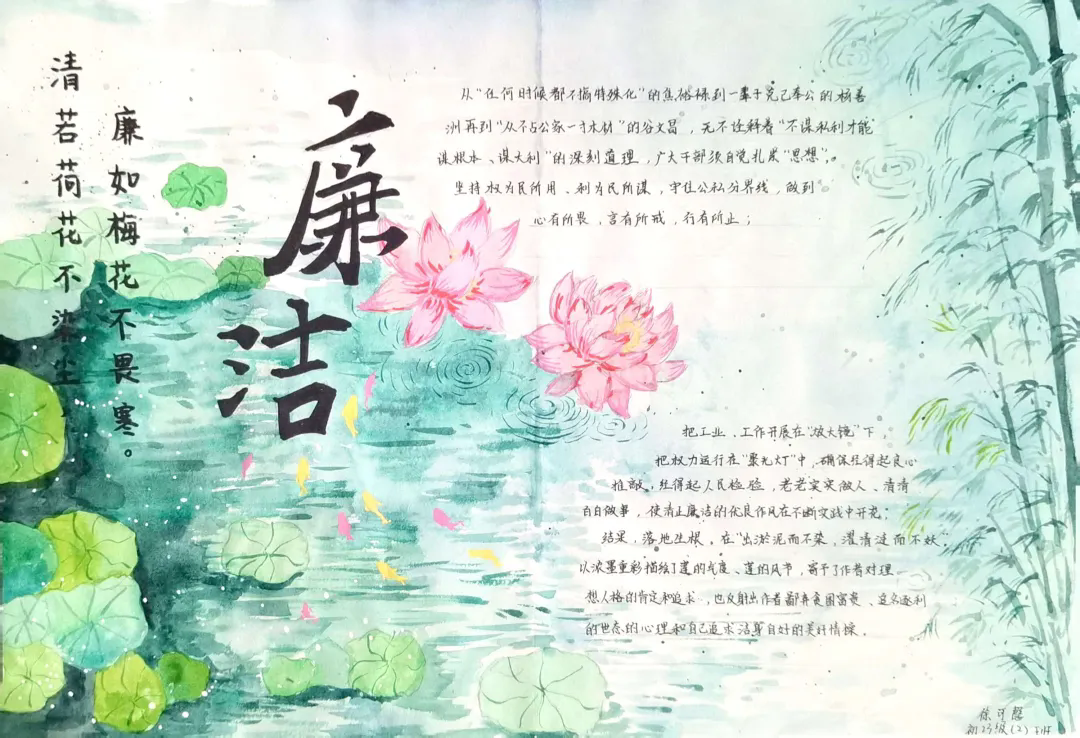 清若荷花不染尘
廉如梅花不畏寒。
廉洁
从“在任何时候都不搞特殊化”的焦裕禄到一辈子克己奉公的杨善
洲再到“从不占公家一寸木材”的谷文昌，无不诠释着“不谋私利才能
谋根本、谋大利”的深刻道理，广大干部须自觉扎紧“思想”。
坚持权为民所用、利为民所谋，守住公私分界线，做到
心有所畏，言有所戒，行有所止；
把工业、工作开展在“放大镜”下，
把权力运行在“聚光灯”中，确保经得起良心
推敲，经得起人民检验，老老实实做人、清清
白白做事，使清正廉洁的优良作风在不断实践中开花；
结果，落地生根。在“出淤泥而不染，濯清涟而不妖”
以浓墨重彩描绘了莲的气度、莲的风节，寄予了作者对理
想人格的肯定和追求，也反射出作者鄙弃贪图富贵、追名逐利
的世态的心理和自己追求洁身自好的美好情操。
徐可
初23级(2)班